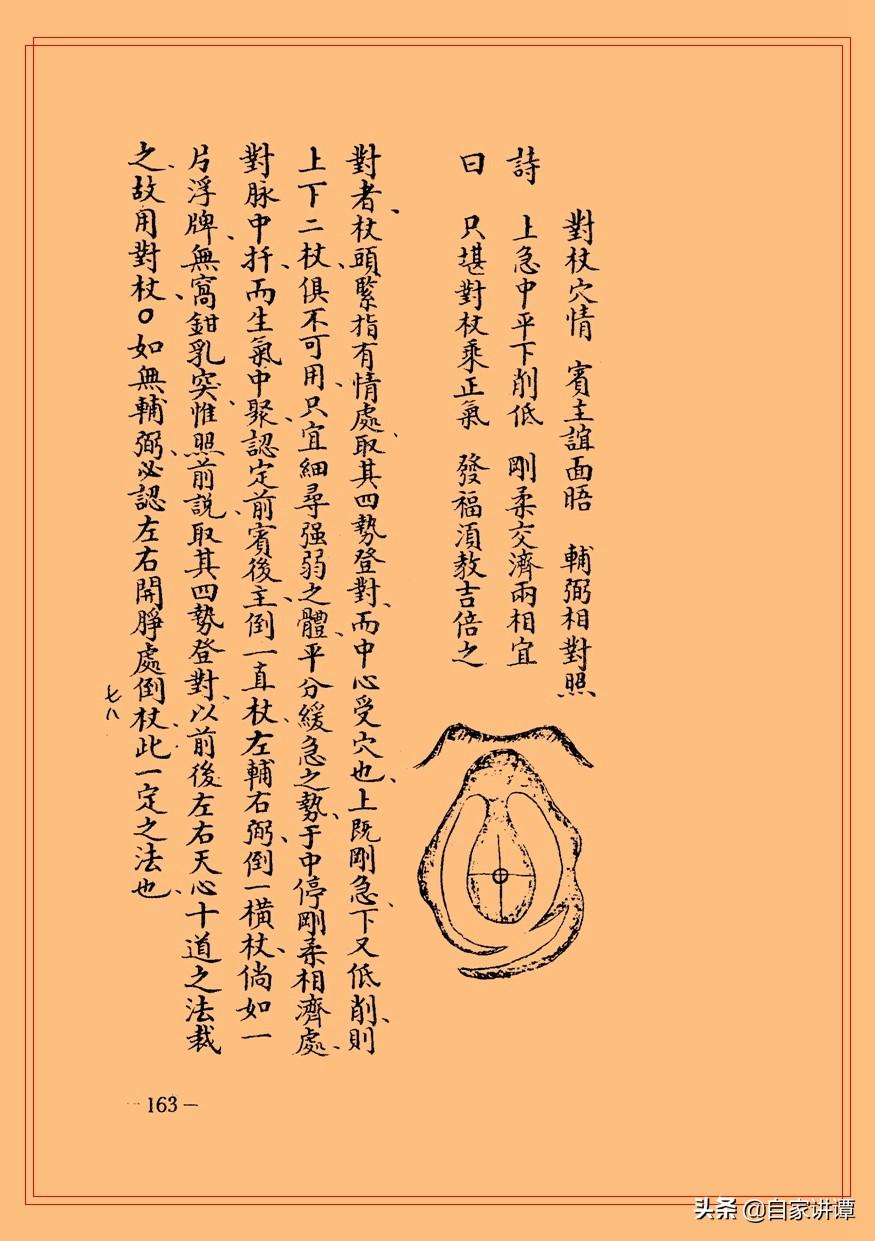 對杖穴情 賓主誼面晤 輔弼相對照
詩 上急中平下削低 剛柔交濟兩相宜
曰 只堪對杖乘正氣 發福須教吉倍之
對者、杖頭緊指有情處、取其四勢登對、而中心受穴也、上既剛急、下又低削、則
上下二杖、俱不可用、只宜細尋强弱之體、平分緩急之勢、于中停剛柔相濟處、
對脉中扦、而生氣中聚、認定前賓後主、倒一直杖、左輔右弼、倒一橫杖、倘如一
片浮牌、無窩鉗乳突、惟照前説、取其四勢登對、以前後左右天心十道之法裁
之、故用對杖、○如無輔弼、必認左右開睜處倒杖、此一定之法也、
七八
163
头条 @自家讲谭